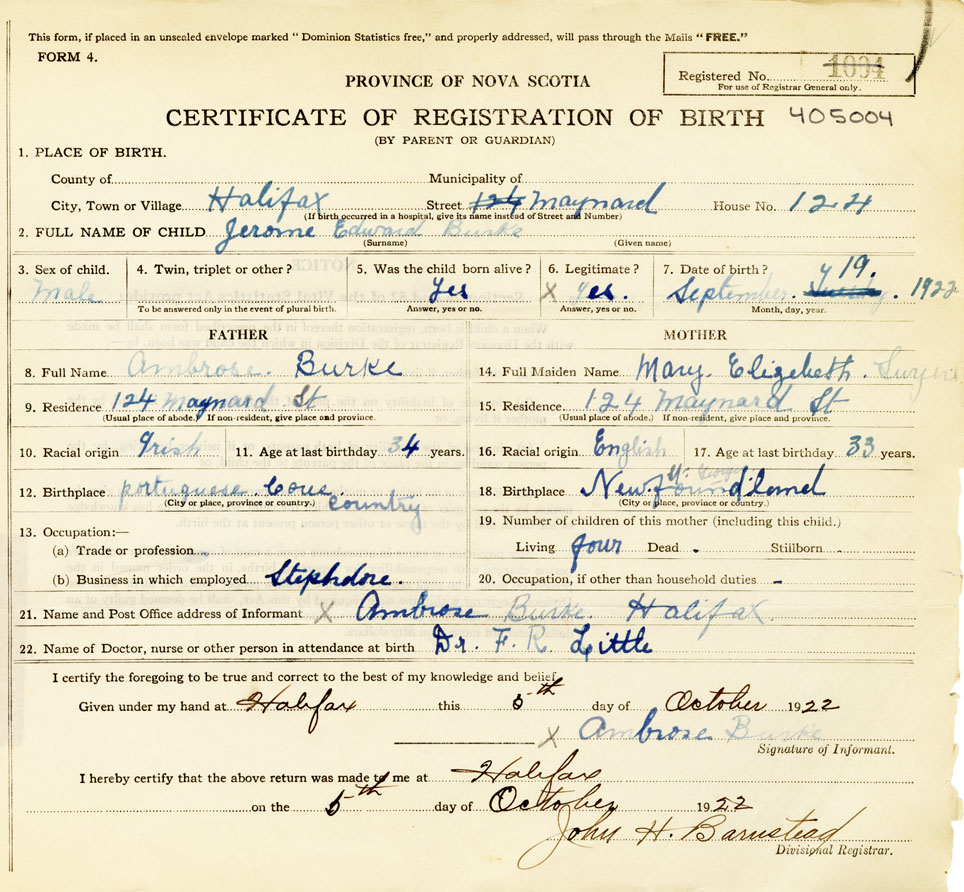 This form, if placed in an unsealed envelope marked "Dominion Statistics free," and properly addressed, will pass through the Mails "FREE."
FORM 4.
PROVINCE OF NOVA SCOTIA
Registered No. 1004
For use of Registrar General only.
CERTIFICATE OF REGISTRATION OF BIRTH 405004
(BY PARENT OR GUARDIAN)
1. PLACE OF BIRTH.
County of Municipality of
City, Town or Village Halifax Street 124 Maynard House No. 124
(If birth occurred in a hospital, give its name instead of Street and Number)
2. FULL NAME OF CHILD Jerome Edward Burke
(Surname) (Given name)
3. Sex of child. 4. Twin, triplet or other? 5. Was the child born alive? 6. Legitimate? 7. Date of birth? 19.
Male Yes X Yes. September. 1922
To be answered only in the event of plural birth. Answer, yes or no. Answer, yes or no. Month, day, year.
FATHER MOTHER
8. Full Name Ambrose. Burke 14. Full Maiden Name Mary. Elizebeth.
9. Residence 124 Maynard St 15. Residence 124 Maynard St
(Usual place of abode.) If non-resident, give place and province. (Usual place of abode.) If non-resident, give place and province.
10. Racial origin Irish 11. Age at last birthday 34 years. 16. Racial origin English 17. Age at last birthday 33 years.
12. Birthplace portuguese. Cove. Country 18. Birthplace Newfoundlamd
(City or place, province or country.) (City or place, province or country.)
19. Number of children of this mother (including this child.)
13. Occupation:—
(a) Trade or profession - Living four Dead . Stillborn
(b) Business in which employed Stephdore. 20. Occupation, if other than household duties -
21. Name and Post Office address of Informant X Ambrose Burke. Halifax.
22. Name of Doctor, nurse or other person in attendance at birth Dr. F. R. Little
I certify the foregoing to be true and correct to the best of my knowledge and belief.
Given under my hand at Halifax this 5th day of October 1922
X Ambrose Burke
Signature of Informant.
I hereby certify that the above return was made to me at Halifax
on the 5th day of October 1922
John H. Barnstead
Divisional Registrar.